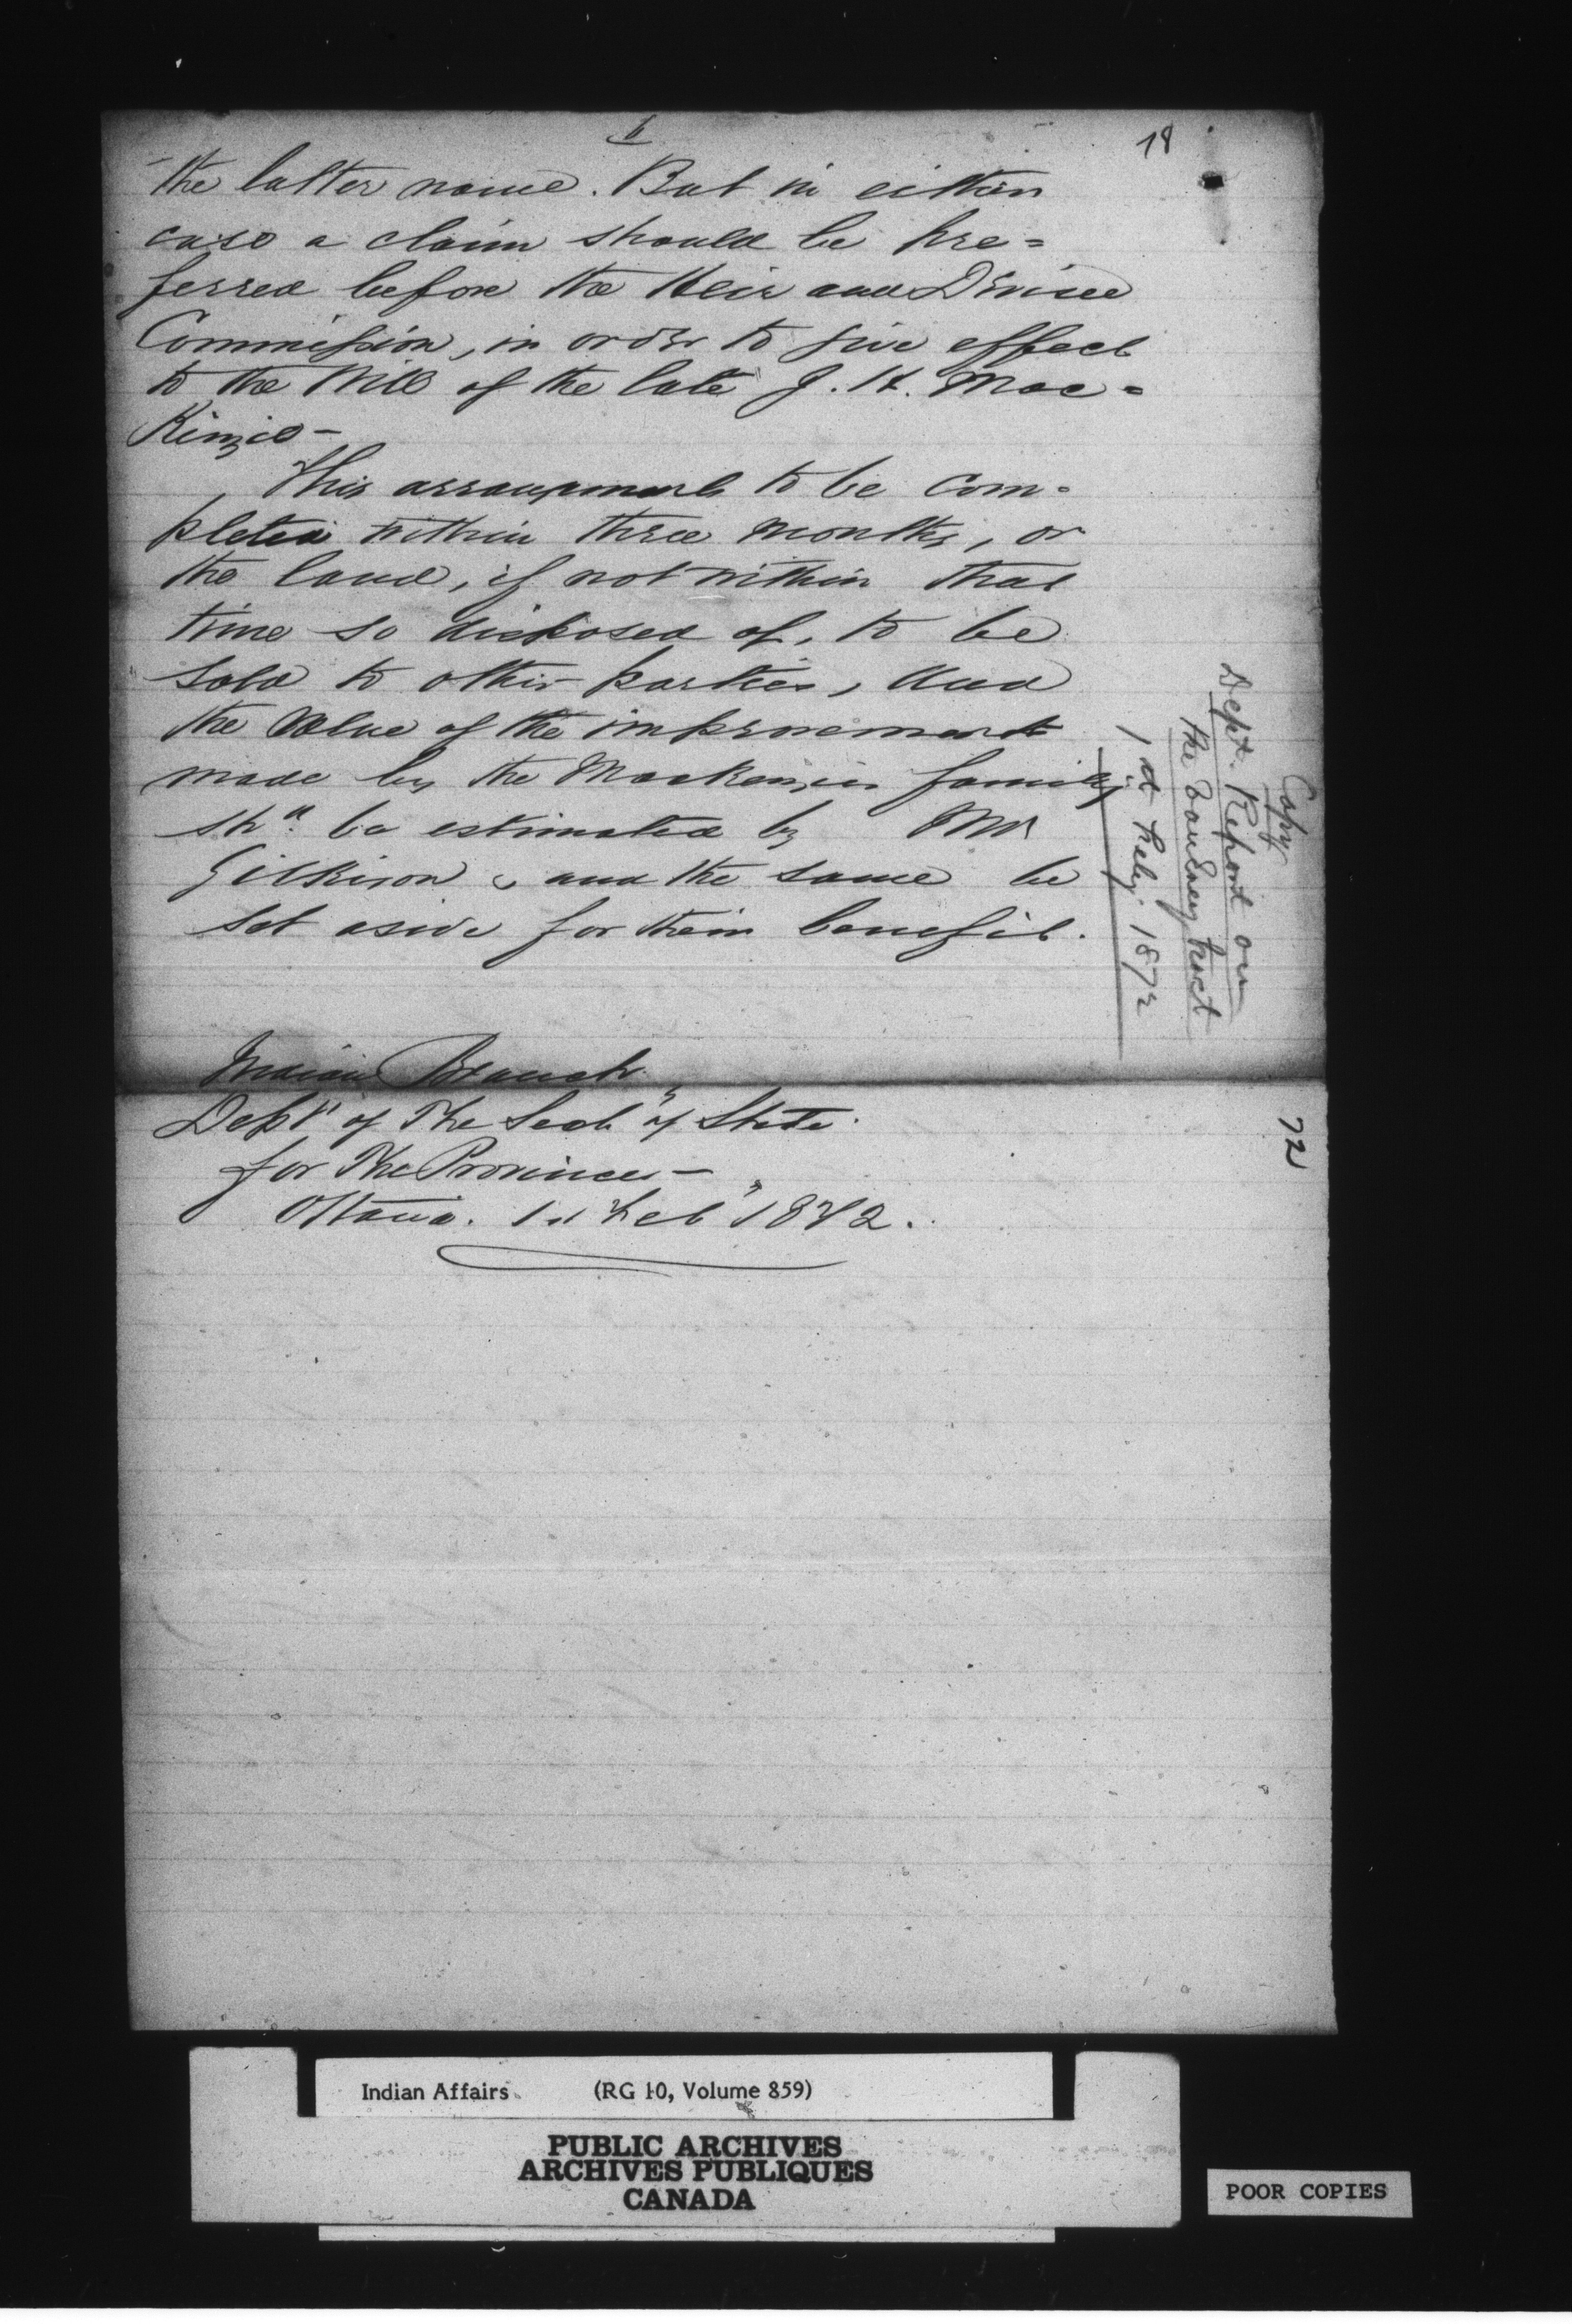 6
18
the latter name. But in either
case a claim should be pre=
ferred before the Heir and Devisee
Commission, in order to give effect
to the Will of the late J. H. Mac=
Kenzie-
This arrangement to be com=
pleted within three months, or
the land, if not within that
time so disposed of, to be
sold to other parties, And
the value of the improvements
made by the Mackenzie family
shd. be estimated by Mr
Gilkison, and the same be
set aside for their benefit.
Indian Branch
Dept of The Secy of State
for The Provinces-
Ottawa. 1st Feby 1872.
Copy
Dept. Report on
the tract
1st Feby 1872
72
Indian Affairs (RG 10, Volume 859)
PUBLIC ARCHIVES
ARCHIVES PUBLIQUES
CANADA
POOR COPIES